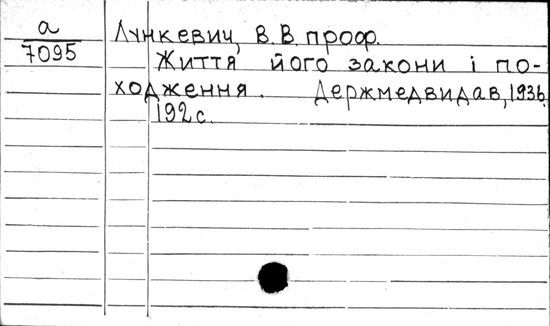 а
7095
Лункевич, В.В. проф.
Життя його закони і по-
ходження. Держмедвидав, 1936.
192 с.